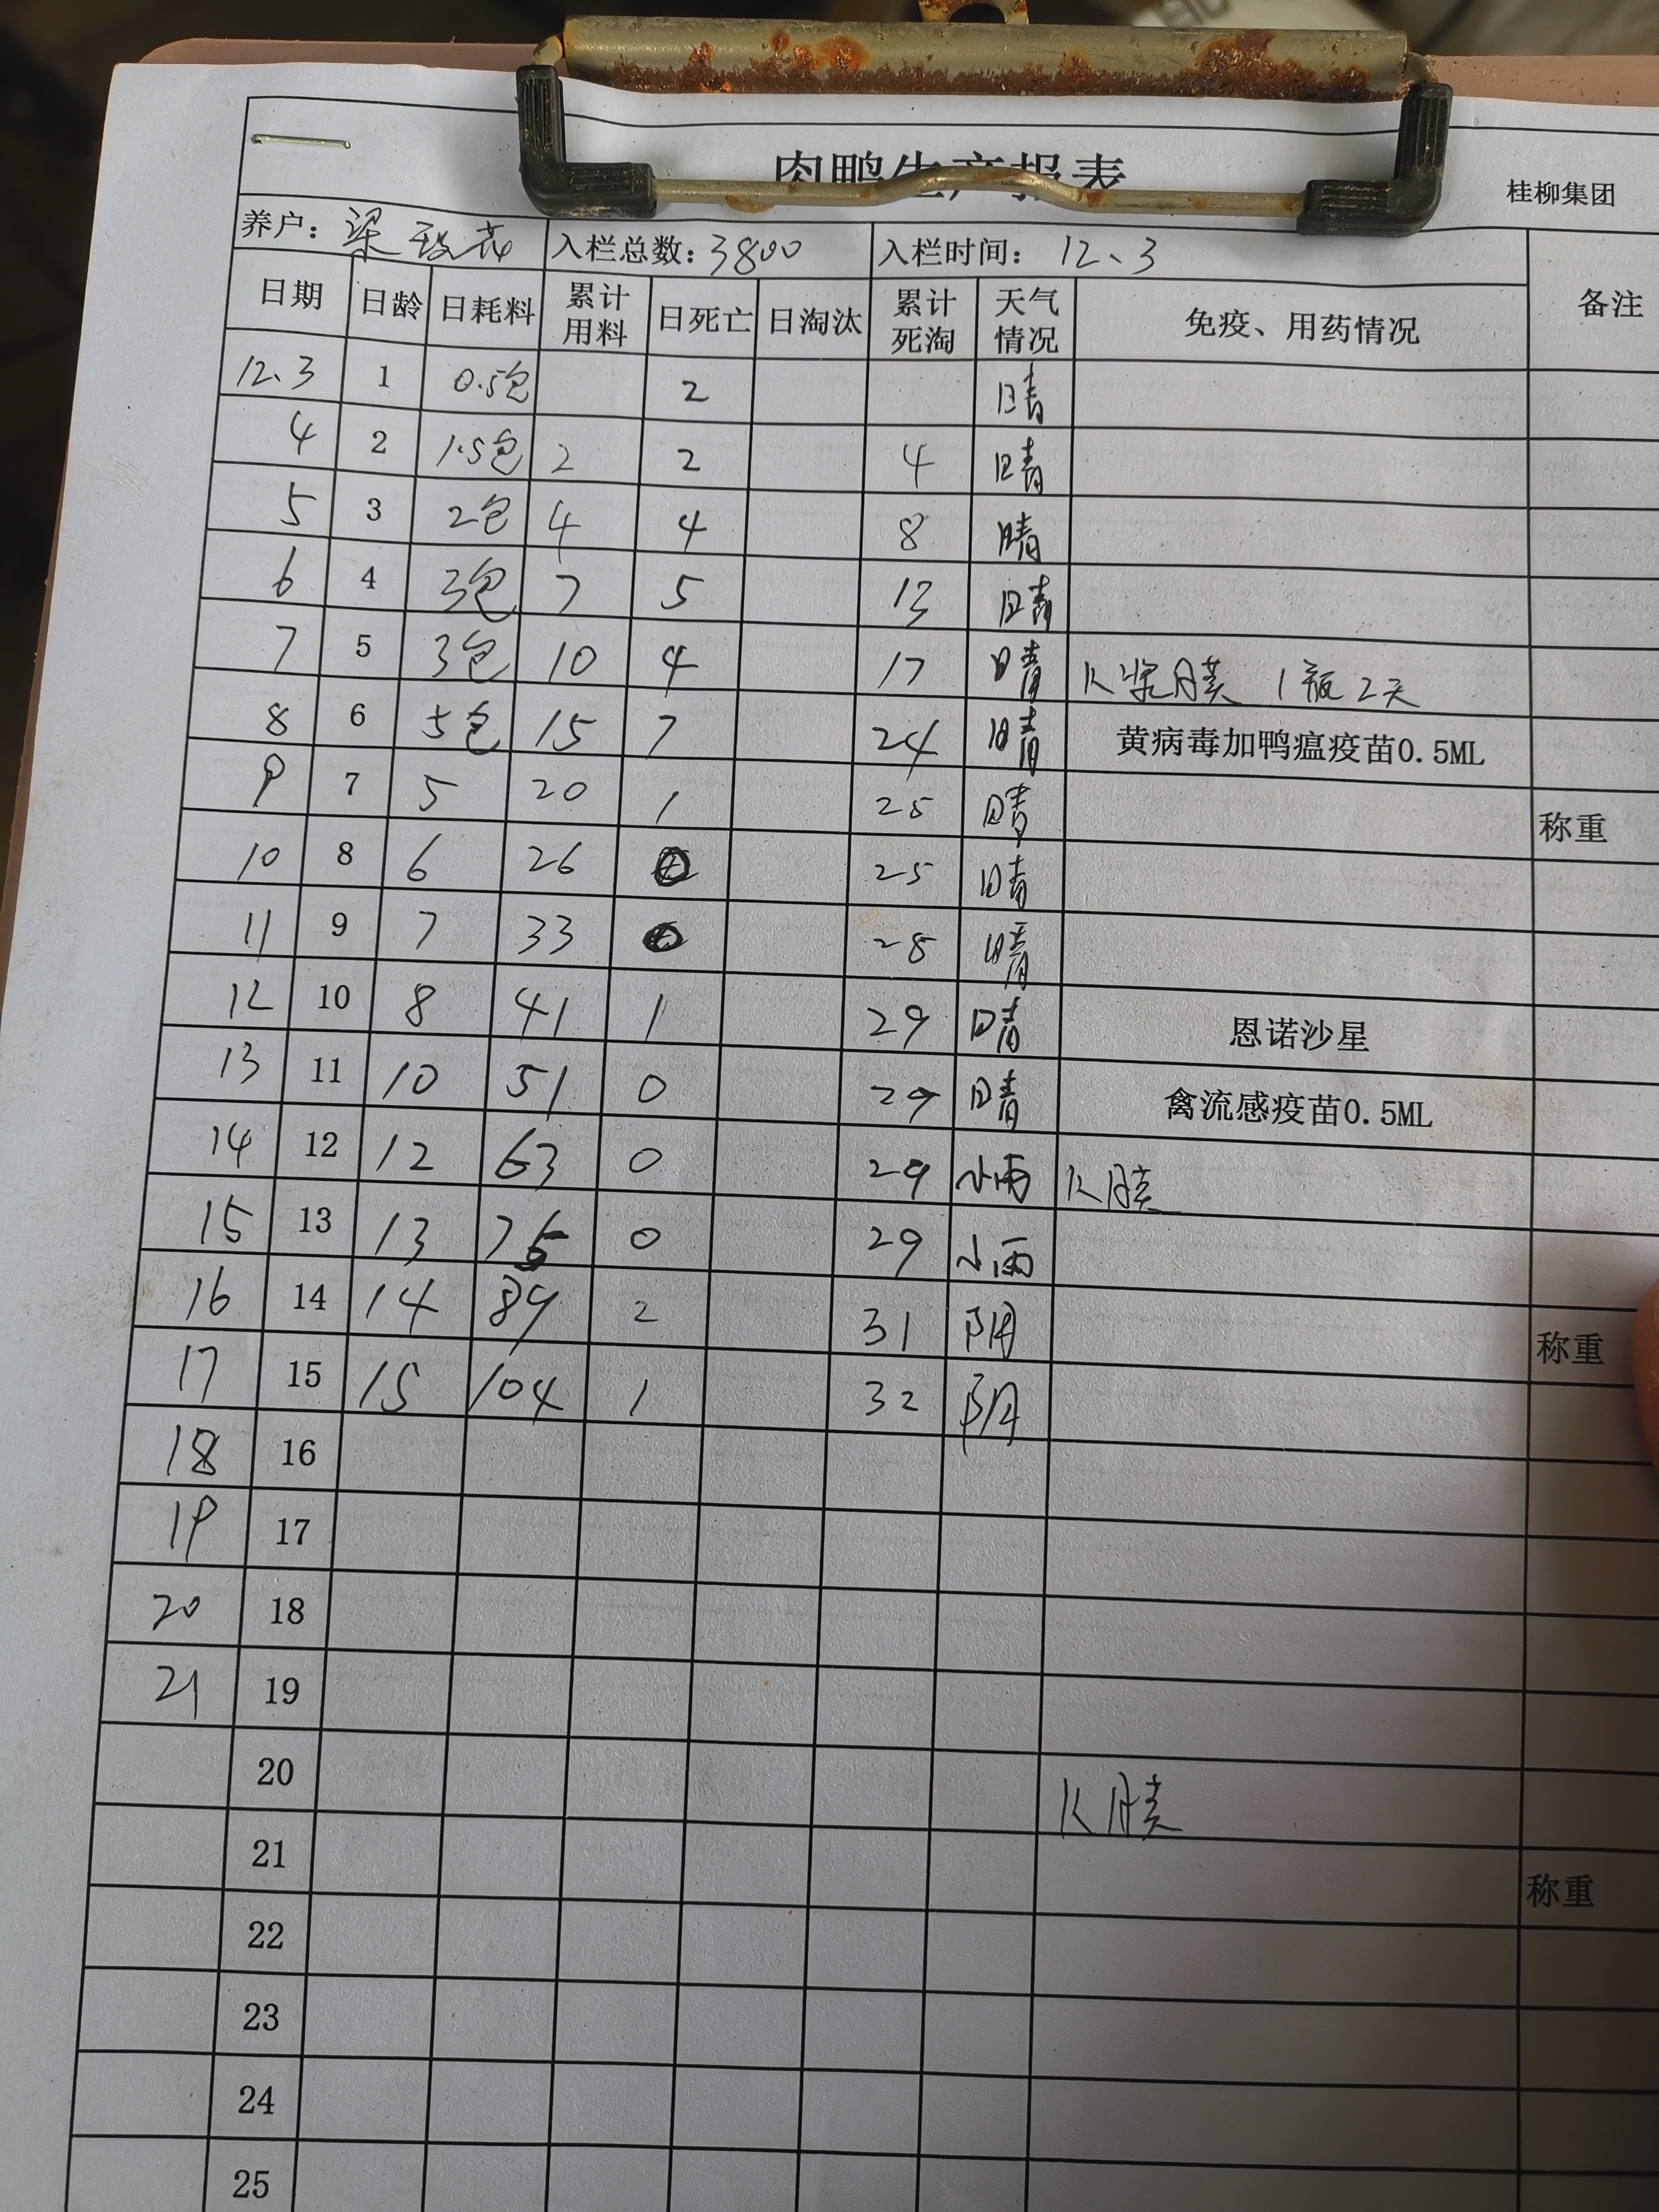 肉鸭生产报表
桂柳集团
养户：梁 入栏总数：3800 入栏时间：12、3 备注
日期 日龄 日耗料 累计用料 日死亡 日淘汰 累计死淘 天气情况 免疫、用药情况
12、3 1 0.5包 2 晴
4 2 1.5包 2 2 4 晴
5 3 2包 4 4 8 晴
6 4 3包 7 5 13 晴
7 5 3包 10 4 17 晴 浆膜 1瓶2天
8 6 5包 15 7 24 晴 黄病毒加鸭瘟疫苗0.5ML
9 7 5 20 1 25 晴 称重
10 8 6 26 25 晴
11 9 7 33 28 晴
12 10 8 41 1 29 晴 恩诺沙星
13 11 10 51 0 29 晴 禽流感疫苗0.5ML
14 12 12 63 0 29 小雨 膜
15 13 13 0 29 小雨
16 14 14 89 2 31 阴 称重
17 15 15 104 1 32 阴
18 16
19 17
20 18
21 19
20 膜
21 称重
22
23
24
25